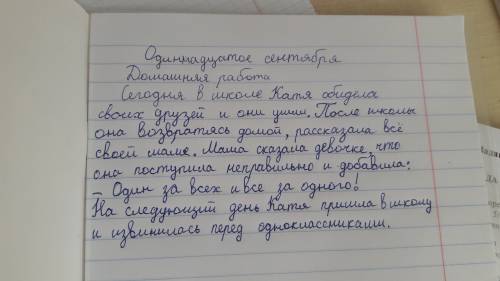 Одиннадцатое сентября
Домашняя работа
Сегодня в школе Катя обидела
своих друзей и они ушли. После школы
она возвратясь домой, рассказала всё
своей маме. Мама сказала девочке, что
она поступила неправильно и добавила:
– Один за всех и все за одного!
На следующий день Катя пришла в школу
и извинилась перед одноклассниками.